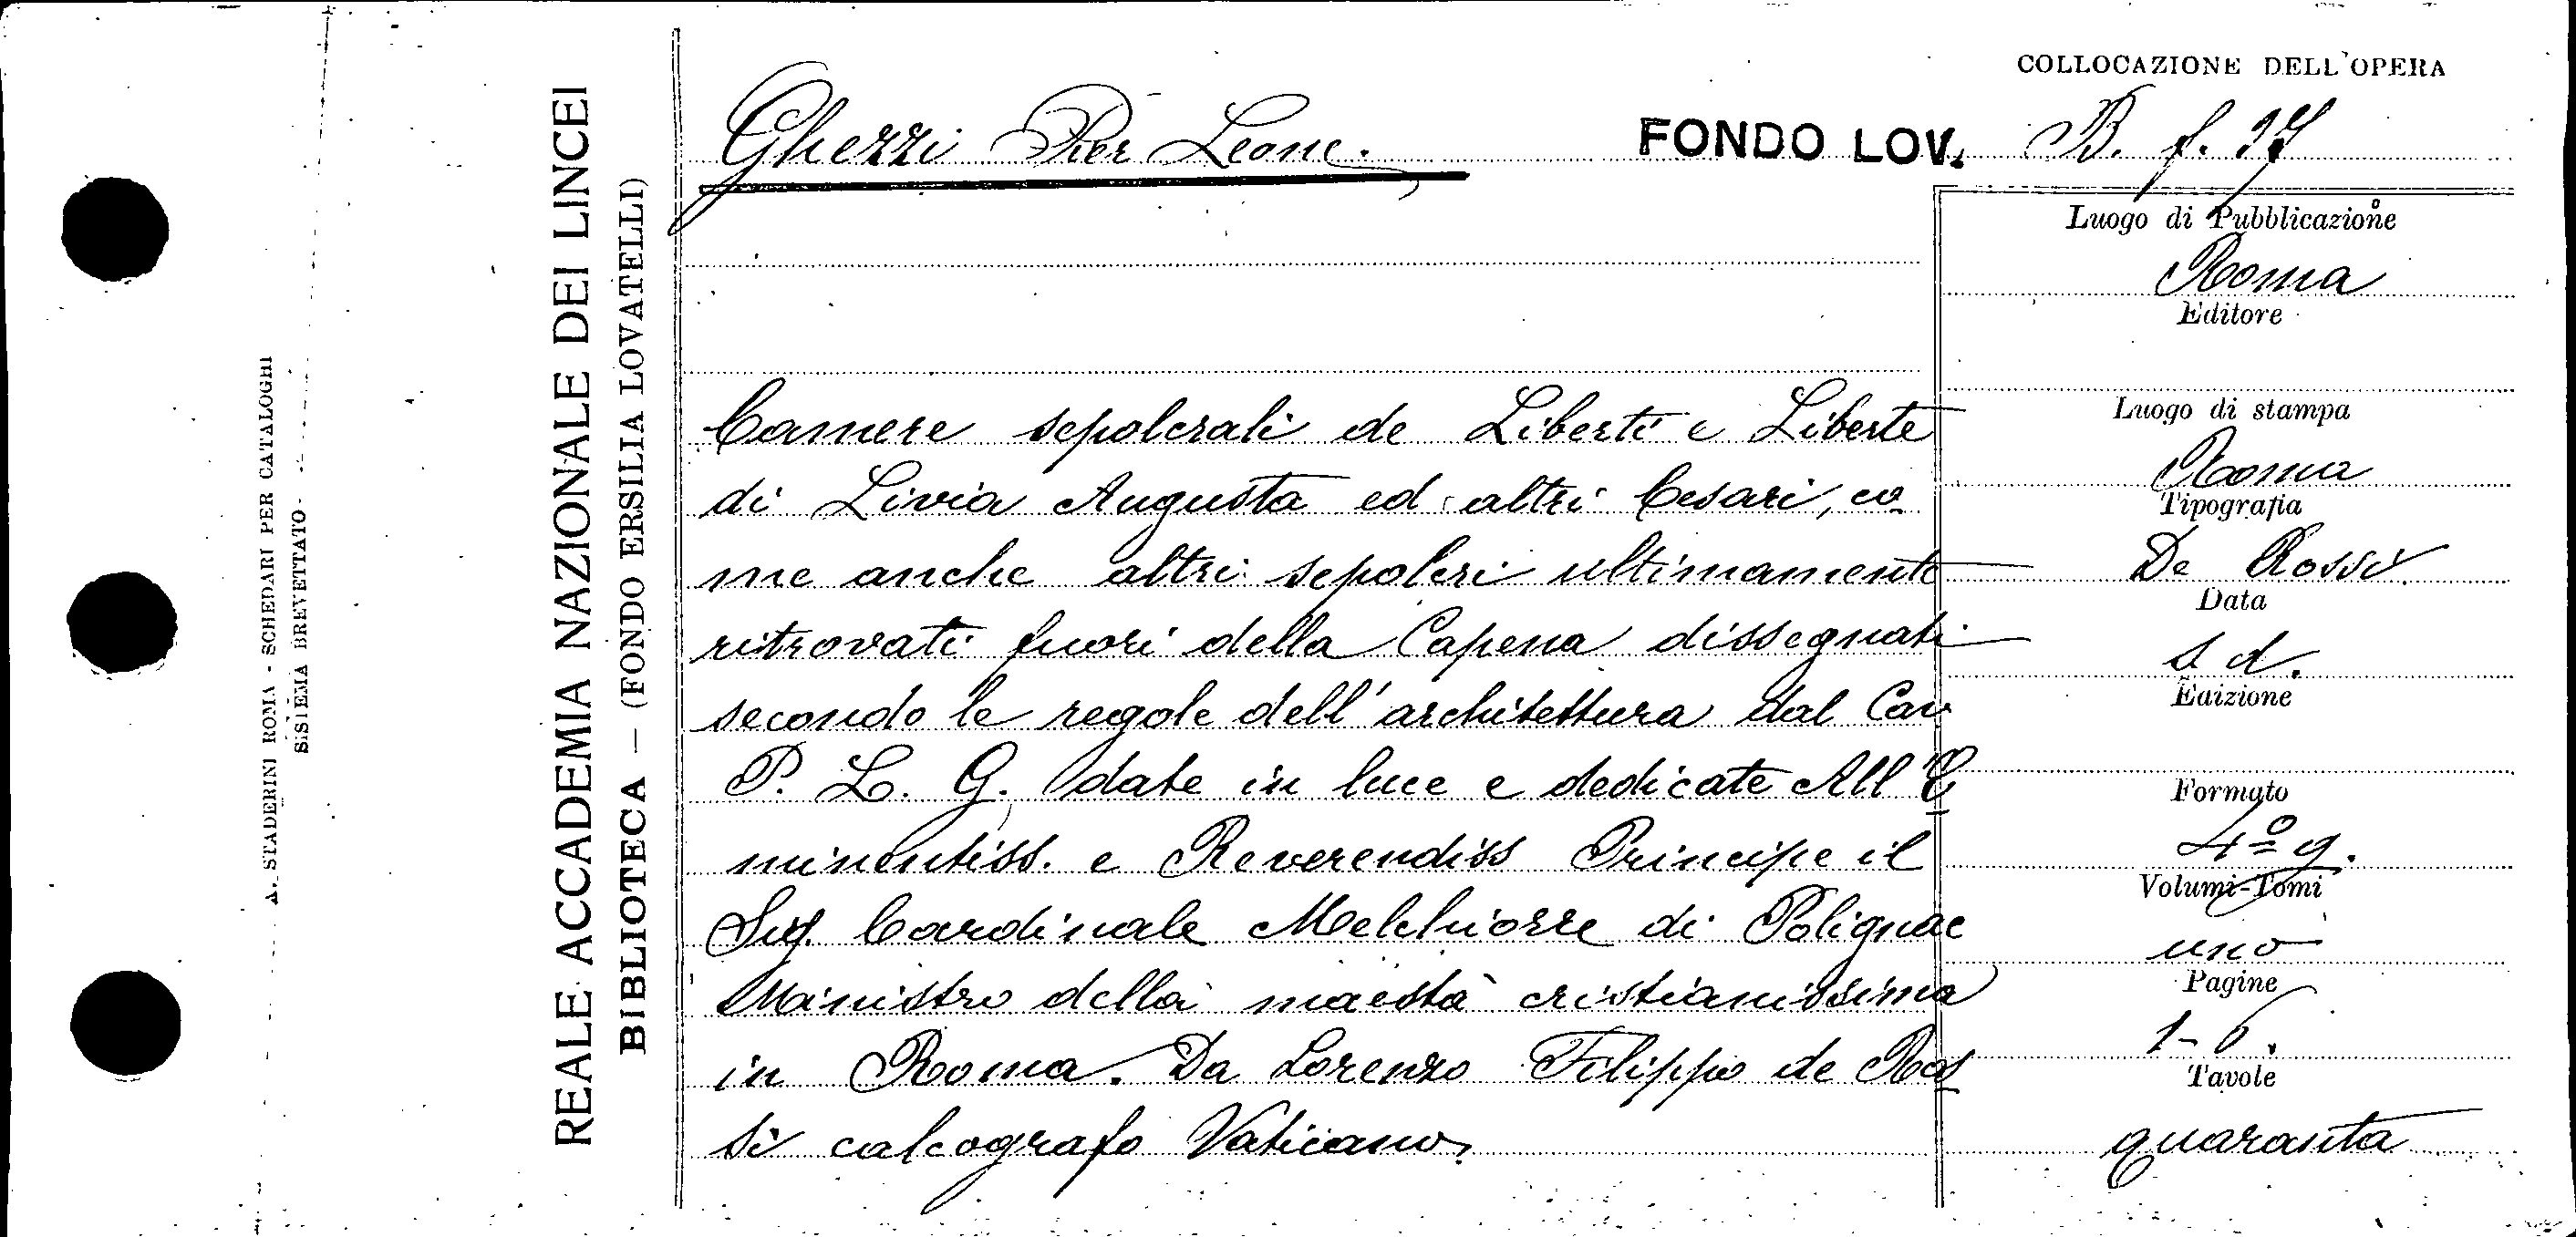 A. STADERINI ROMA - SCHEDARI PER CATALOGHI
SISTEMA BREVETTATO
REALE ACCADEMIA NAZIONALE DEI LINCEI
BIBLIOTECA — (FONDO ERSILIA LOVATELLI)
Ghezzi Pier Leone.
FONDO LOV.
COLLOCAZIONE DELL'OPERA
B. f. 37
Camere sepolcrali de Liberti e Liberte
di Livia Augusta ed altri Cesari, co
me anche altri sepolcri ultimamente
ritrovati fuori della Capena dissegnati
secondo le regole dell'architettura dal Cav
P. L. G. date in luce e dedicate All'E
minentiss. e Reverendiss Principe il
Sig. Cardinale Melchiorre di Polignac
Ministro della maestà cristianissima
in Roma. Da Lorenzo Filippo de Ros
si calcografo Vaticano.
Luogo di Pubblicazione
Roma
Editore
Luogo di stampa
Roma
Tipografia
De Rossi
Data
s d.
Edizione
Formato
4º g.
Volumi-Tomi
uno
Pagine
1-6.
Tavole
quaranta